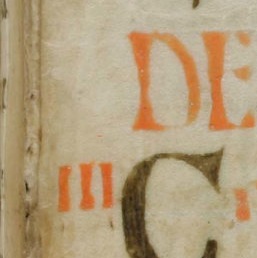 DE
III C